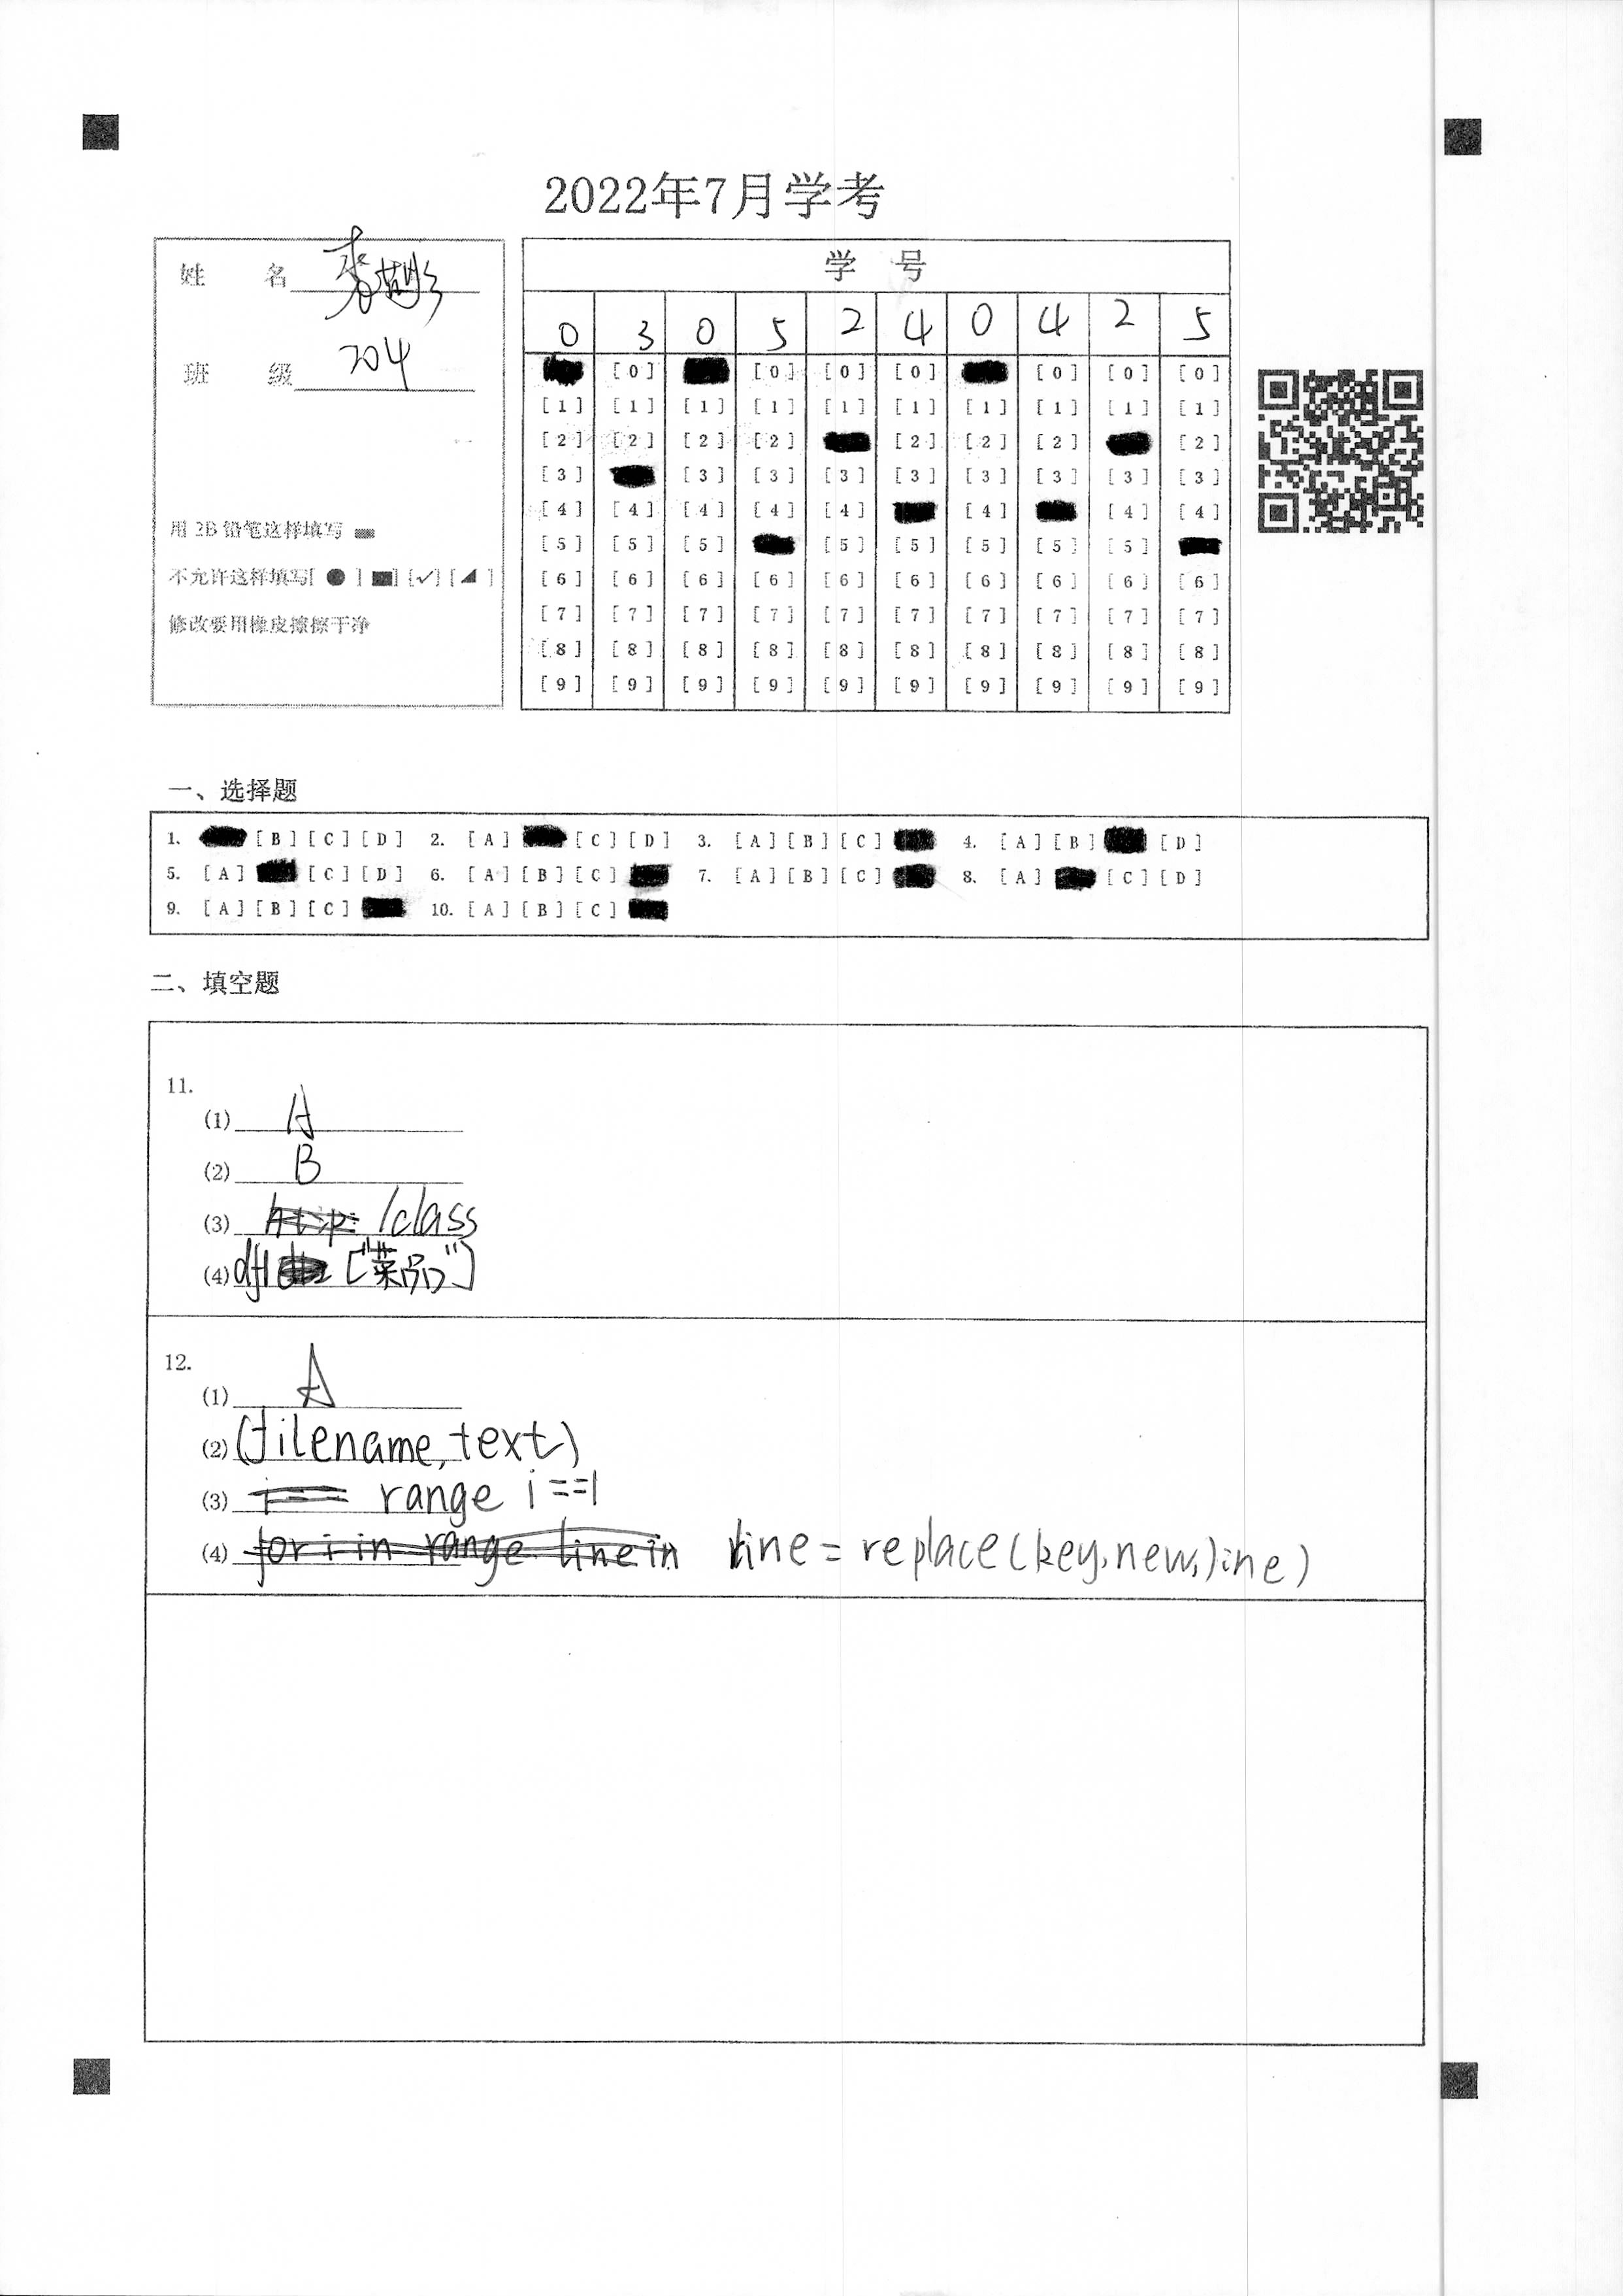 2022年7月学考
姓 名 李
班 级 204
用 2B 铅笔这样填写
不允许这样填写[ ● ] [■] [✓] [◢ ]
修改要用橡皮擦擦干净
学 号
0 3 0 5 2 4 0 4 2 5
[0] [0] [0] [0] [0] [0] [0]
[1] [1] [1] [1] [1] [1] [1] [1] [1] [1]
[2] [2] [2] [2] [2] [2] [2] [2]
[3] [3] [3] [3] [3] [3] [3] [3] [3]
[4] [4] [4] [4] [4] [4] [4] [4]
[5] [5] [5] [5] [5] [5] [5] [5]
[6] [6] [6] [6] [6] [6] [6] [6] [6] [6]
[7] [7] [7] [7] [7] [7] [7] [7] [7] [7]
[8] [8] [8] [8] [8] [8] [8] [8] [8] [8]
[9] [9] [9] [9] [9] [9] [9] [9] [9] [9]
一、选择题
1. [B] [C] [D] 2. [A] [C] [D] 3. [A] [B] [C] 4. [A] [B] [D]
5. [A] [C] [D] 6. [A] [B] [C] 7. [A] [B] [C] 8. [A] [C] [D]
9. [A] [B] [C] 10. [A] [B] [C]
二、填空题
11.
(1) A
(2) B
(3) /class
(4) df1 ["菜品"]
12.
(1) A
(2) (filename,text)
(3) range i==1
(4) for i in range line in line=replace(key,new,line)